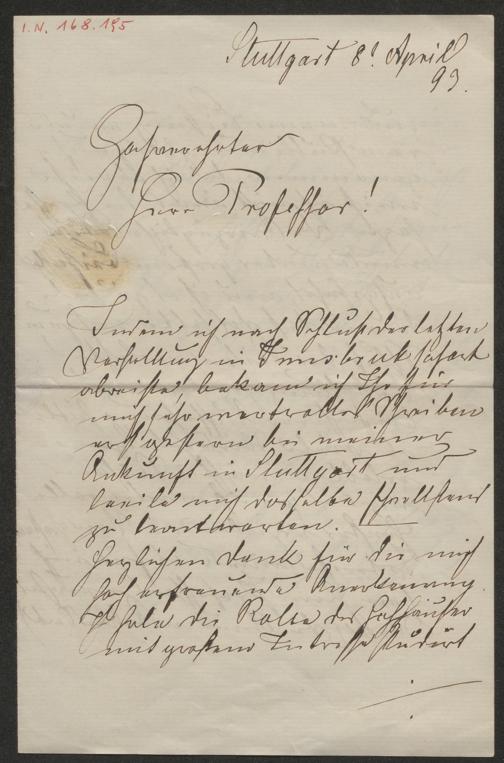 I.N. 168.195
Stuttgart 8t April
93.
Hochverehrter
Herr Professor!
Indem ich nach Schluß der letzten
Vorstellung in Innsbruck sofort
abreiste, bekam ich Ihr für
mich sehr wertvolles Schreiben
erst gestern bei meiner
Ankunft in Stuttgart und
beeile mich dasselbe schnellstens
zu beantworten.
Herzlichen Dank für die mich
hoch erfreuende Anerkennung.
Ich habe die Rolle des
mit großem Interesse studirt